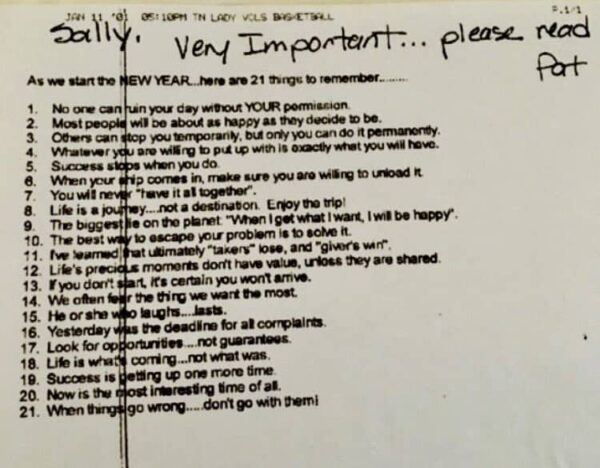 JAN 11 '01 05:10PM TN LADY VOLS BASKETBALL P.1/1
Sally,
Very Important... please read
Pat
As we start the NEW YEAR...here are 21 things to remember.........
1. No one can ruin your day without YOUR permission.
2. Most people will be about as happy as they decide to be.
3. Others can stop you temporarily, but only you can do it permanently.
4. Whatever you are willing to put up with is exactly what you will have.
5. Success stops when you do.
6. When your ship comes in, make sure you are willing to unload it.
7. You will never "have it all together".
8. Life is a journey....not a destination. Enjoy the trip!
9. The biggest lie on the planet: "When I get what I want, I will be happy".
10. The best way to escape your problem is to solve it.
11. I've learned that ultimately "takers" lose, and "giver's win".
12. Life's precious moments don't have value, unless they are shared.
13. If you don't start, it's certain you won't arrive.
14. We often fear the thing we want the most.
15. He or she who laughs....lasts.
16. Yesterday was the deadline for all complaints.
17. Look for opportunities....not guarantees.
18. Life is what's coming...not what was.
19. Success is getting up one more time.
20. Now is the most interesting time of all.
21. When things go wrong.....don't go with them!